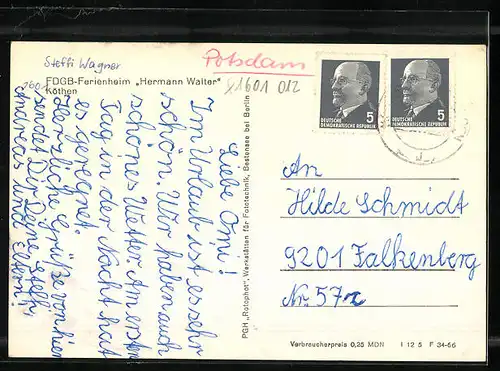 Steffi Wagner
FDGB-Ferienheim „Hermann Walter"
Köthen
Potsdam
1601 012
Liebe Omi!
Im Urlaub ist es sehr
schön. Wir haben auch
schönes Wetter. Am ersten
Tag in der Nacht hat
es geregnet.
Herzliche Grüße von hier
sendet Dir Deine Steffi
Andreas und Eltern!
PGH „Rotophot", Werkstätten für Fototechnik, Bestensee bei Berlin
5
DEUTSCHE
DEMOKRATISCHE REPUBLIK
5
DEUTSCHE
DEMOKRATISCHE REPUBLIK
An
Hilde Schmidt
9201 Falkenberg
Nr. 57a
Verbraucherpreis 0,25 MDN I 12 5 F 34-66